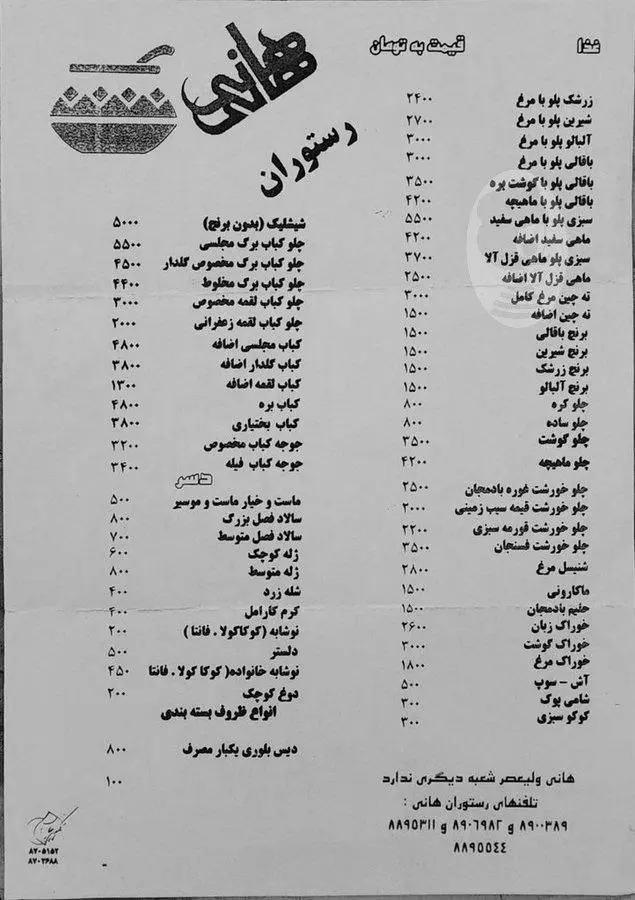 غذا قیمت به تومان
زرشک پلو با مرغ ۲۴۰۰
شیرین پلو با مرغ ۲۷۰۰
آلبالو پلو با مرغ ۳۰۰۰
باقالی پلو با مرغ ۳۰۰۰
باقالی پلو با گوشت بره ۳۵۰۰
باقالی پلو با ماهیچه ۴۲۰۰
سبزی پلو با ماهی سفید ۵۵۰۰
ماهی سفید اضافه ۴۲۰۰
سبزی پلو ماهی قزل آلا ۳۷۰۰
ماهی قزل آلا اضافه ۲۵۰۰
ته چین مرغ کامل ۳۰۰۰
ته چین اضافه ۱۵۰۰
برنج باقالی ۱۵۰۰
برنج شیرین ۱۵۰۰
برنج زرشک ۱۵۰۰
برنج آلبالو ۱۵۰۰
چلو کره ۸۰۰
چلو ساده ۸۰۰
چلو گوشت ۳۵۰۰
چلو ماهیچه ۴۲۰۰
چلو خورشت غوره بادمجان ۲۵۰۰
چلو خورشت قیمه سیب زمینی ۲۰۰۰
چلو خورشت قورمه سبزی ۲۲۰۰
چلو خورشت فسنجان ۳۵۰۰
شنیسل مرغ ۲۸۰۰
ماکارونی ۱۵۰۰
حلیم بادمجان ۱۵۰۰
خوراک زبان ۲۶۰۰
خوراک گوشت ۳۰۰۰
خوراک مرغ ۱۸۰۰
آش - سوپ ۵۰۰
شامی پوک ۳۰۰
کوکو سبزی ۳۰۰
هانی ولیعصر شعبه دیگری ندارد
تلفنهای رستوران هانی :
۸۹۰۰۳۸۹ و ۸۹۰۶۹۸۲ و ۸۸۹۵۳۱۱
۸۸۹۵۵۴۴
هانی
رستوران
شیشلیک (بدون برنج) ۵۰۰۰
چلو کباب برگ مجلسی ۵۵۰۰
چلو کباب برگ مخصوص گلدار ۴۵۰۰
چلو کباب برگ مخلوط ۴۴۰۰
چلو کباب لقمه مخصوص ۳۰۰۰
چلو کباب لقمه زعفرانی ۲۰۰۰
کباب مجلسی اضافه ۴۸۰۰
کباب گلدار اضافه ۳۸۰۰
کباب لقمه اضافه ۱۳۰۰
کباب بره ۴۸۰۰
کباب بختیاری ۳۸۰۰
جوجه کباب مخصوص ۳۲۰۰
جوجه کباب فیله ۳۴۰۰
دسر
ماست و خیار ماست و موسیر ۵۰۰
سالاد فصل بزرگ ۸۰۰
سالاد فصل متوسط ۷۰۰
ژله کوچک ۶۰۰
ژله متوسط ۸۰۰
شله زرد ۴۰۰
کرم کارامل ۴۰۰
نوشابه (کوکاکولا . فانتا ) ۲۰۰
دلستر ۵۰۰
نوشابه خانواده( کوکا کولا . فانتا ۴۵۰
دوغ کوچک ۲۰۰
انواع ظروف بسته بندی
دیس بلوری یکبار مصرف ۸۰۰
۱۰۰
۸۷۰۵۱۵۲
۸۷۰۲۶۸۸